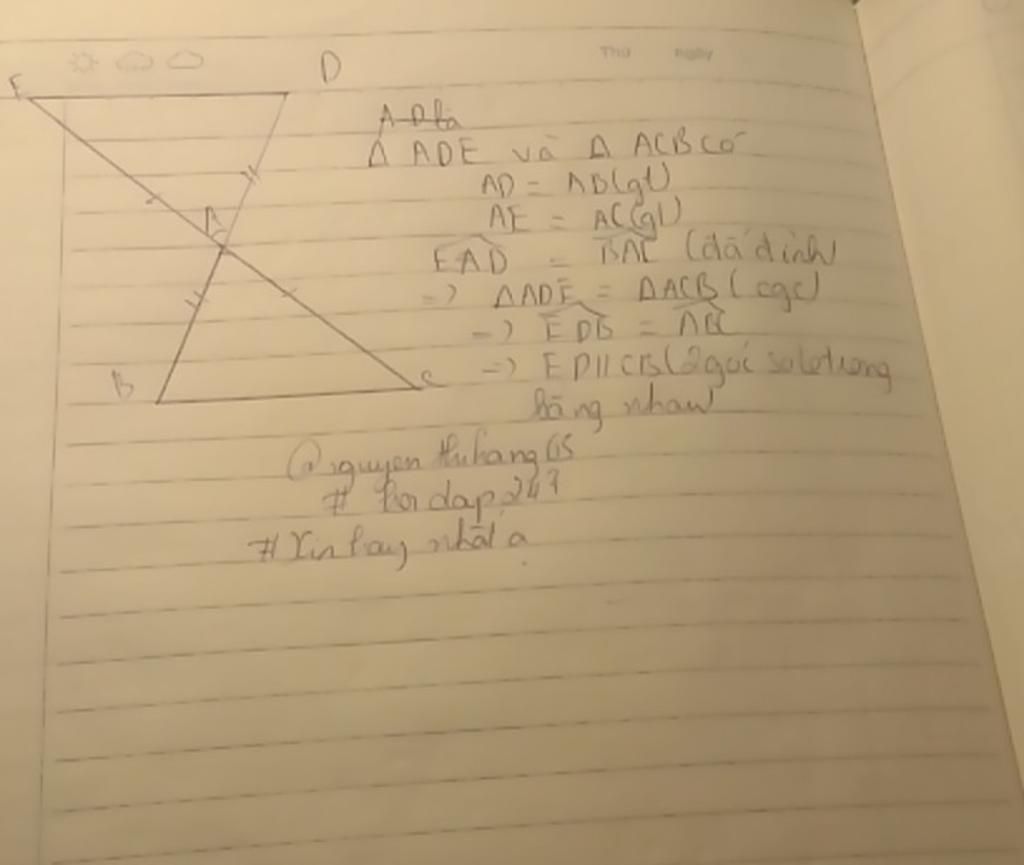 Thứ ngày
E
D
A D là
Δ ADE và Δ ACB có
AD = AB (gt)
AE = AC (gt)
A
EAD = BAC (đã đỉnh)
=> ΔADE = ΔACB (cgc)
=> EDB = ABC
B
C
=> ED // CB (2 góc so le trong
bằng nhau)
@nguyenthuhang65
# hoidap247
# Xin hay nhất ạ